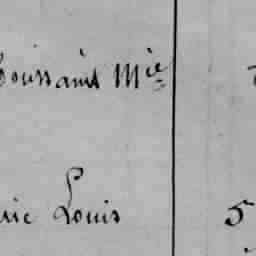 oussaint Mie
rie Louis 5